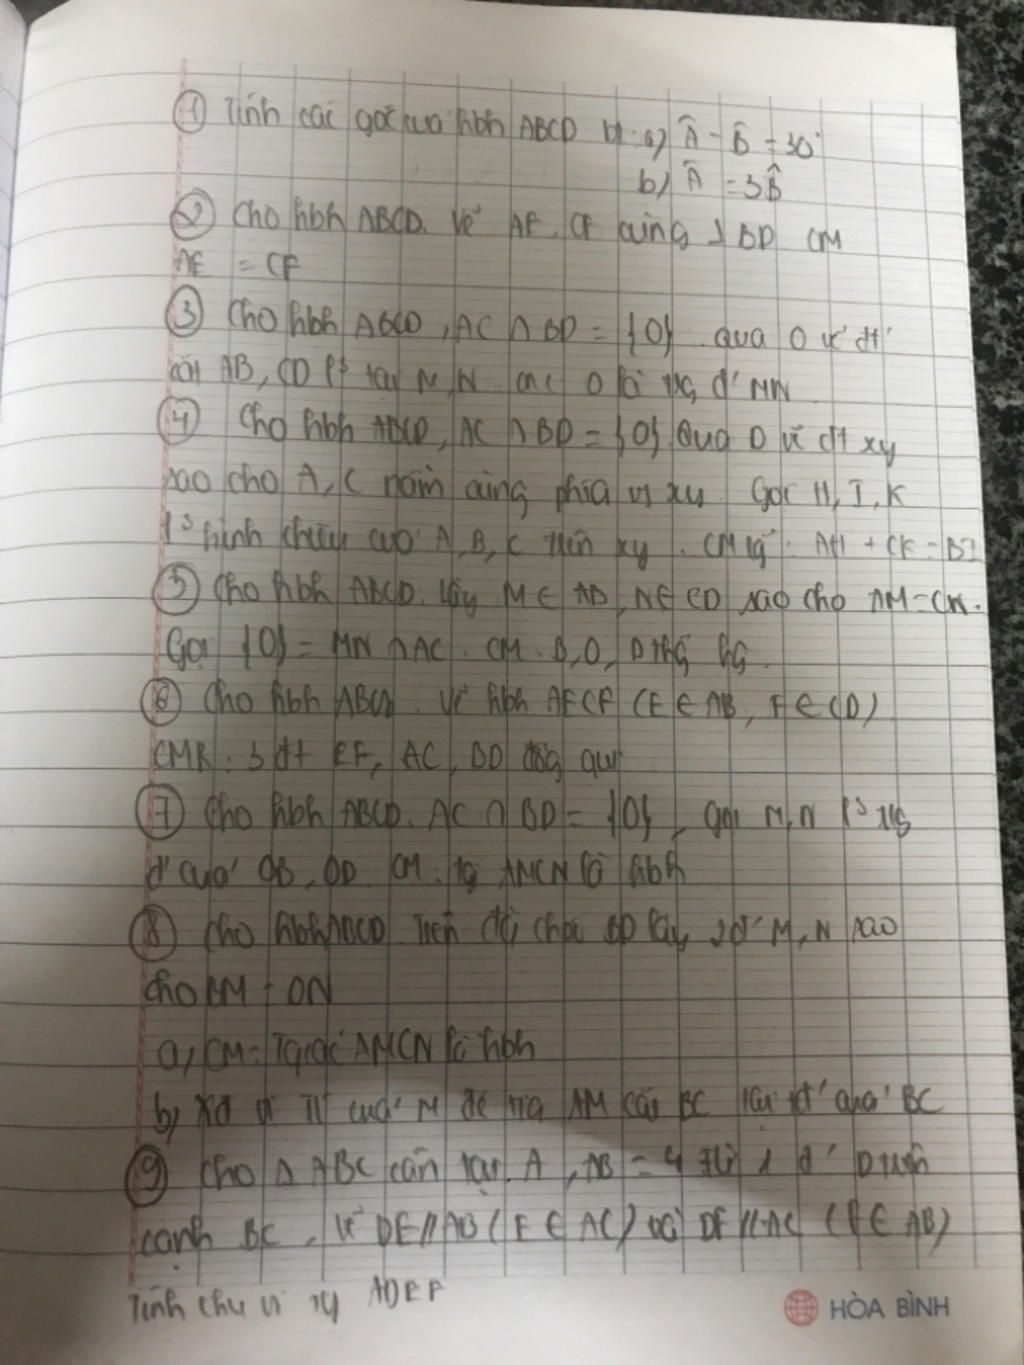 ① Tính các góc của hbh ABCD bt: a) Â - B̂ = 30°
b) Â = 3B̂
② Cho hbh ABCD. Vẽ AE, CF cùng ⊥ BD CM
AE = CF
③ Cho hbh ABCD, AC ∩ BD = {O}. qua O vẽ đt
cắt AB, CD lần lượt tại M, N. CM O là tg đ' MN
④ Cho hbh ABCD, AC ∩ BD = {O} Qua D vẽ đt xy
sao cho A, C nằm cùng phía vs xy. Gọi H, I, K
l³ hình chiếu của A, B, C trên xy. CM rg: AH + CK = BI
⑤ Cho hbh ABCD. Lấy M ∈ AD, N ∈ CD sao cho AM = CN.
Gọi {O} = MN ∩ AC. CM B, O, D thg hg.
⑥ Cho hbh ABCD. Vẽ hbh AECF (E ∈ AB, F ∈ CD)
CMR: 3 đt EF, AC, BD đồng quy
⑦ Cho hbh ABCD. AC ∩ BD = {O}, gọi M, N l³ trg
đ' của OB, OD. CM: tg AMCN là hbh
⑧ Cho hbh ABCD Trên đg chéo BD lấy 2 đ' M, N sao
cho BM = DN
a, CM: Tgiác AMCN là hbh
b) Xđ vị trí của M để tia AM cắt BC tại đ' của BC
⑨ Cho Δ ABC cân tại A, AB = 4 Từ 1 đ' D trên
cạnh BC, vẽ DE // AB (E ∈ AC) và DF // AC (F ∈ AB)
Tính chu vi tg ADEF
HÒA BÌNH